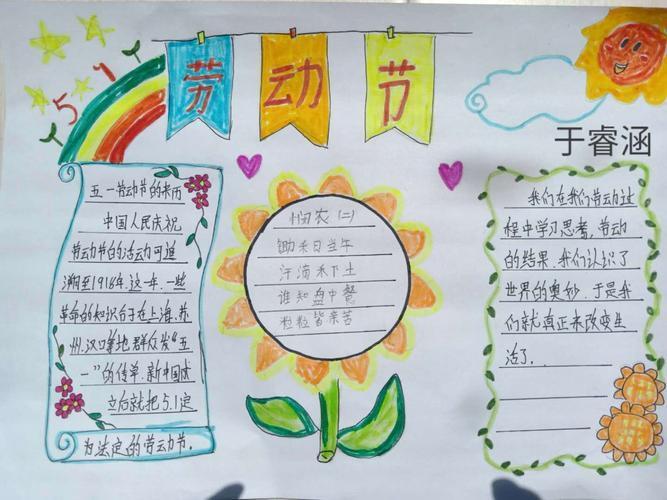 劳动节
5 1
于睿涵
五一劳动节的来历
中国人民庆祝
劳动节的活动可追
溯至1918年.这一年.一些
革命的知识份子在上海.苏
州.汉口等地群众发“五
一”的传单.新中国成
立后就把5.1定
为法定的劳动节.
悯农(二)
锄禾日当午
汗滴禾下土
谁知盘中餐
粒粒皆辛苦
我们在我们劳动过
程中学习思考.劳动
的结果.我们认识了
世界的奥妙.于是我
们就真正来改变生
活了.